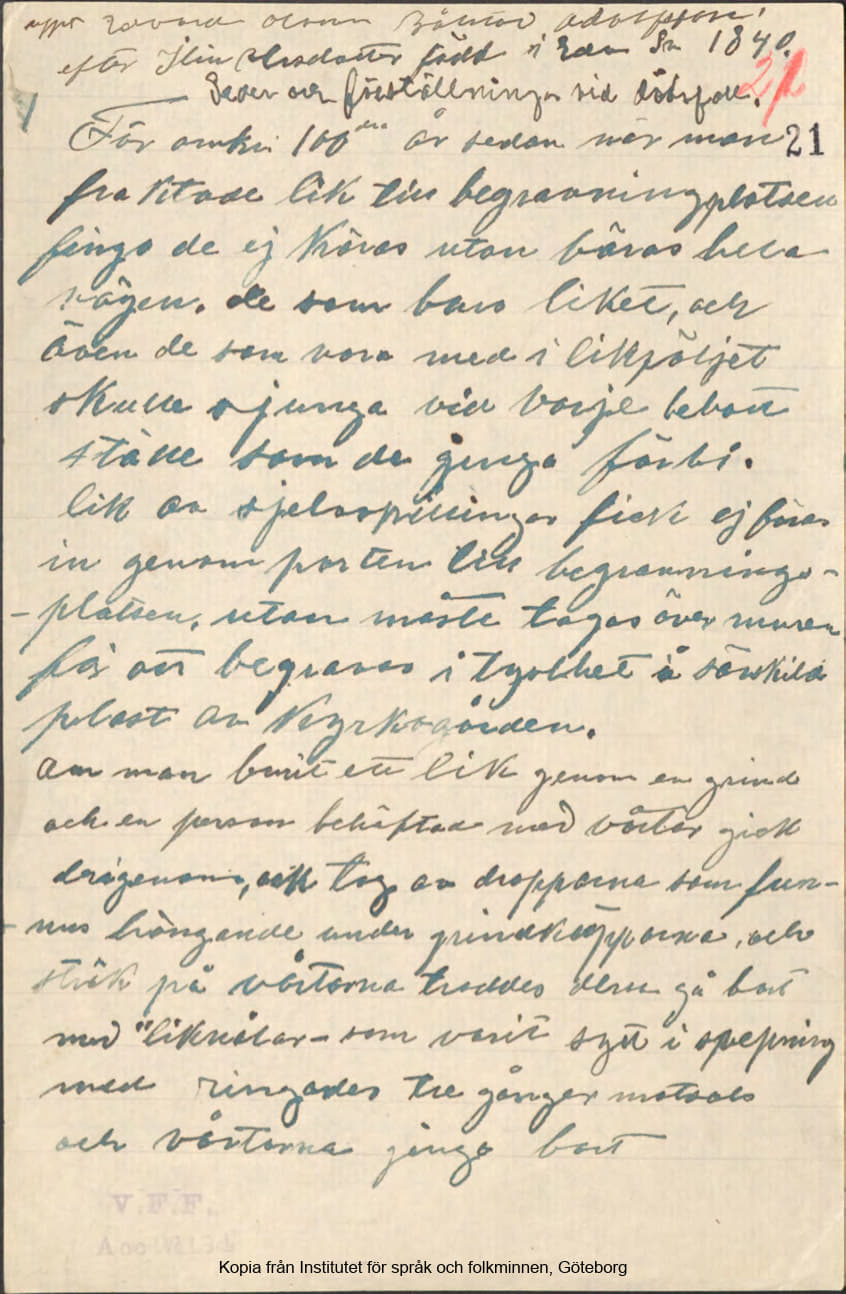 efter född i Eda Sn 1840.
21
Seder och föreställningar vid dödsfall.
För omkr 100 år sedan når man 21
fraktade lik till begravningplatsen
fingo de ej köras utan båras hela
vägen. de som baro liket, och
även de som voro med i likföljet
skulle sjunga vid varje bebott
ställe som de gingo förbi.
lik av sjelvspillingar fick ej föras
in genom porten till begravnings-
-platsen, utan måste tagas över muren
för att begravas i tysthet å särskild
plast av Kyrkogården.
Om man burit ett lik genom en grind
och en person behäftad med vårtor gick
drigenom, och tog av dropparna som fun-
-nos hängande under grindkäpparna, och
strök på vårtorna troddes dem gå bort
med "liknålar- som varit sytt i svepning
med ringades tre gånger motsols
och vårtorna gingo bort
V.F.F.
Kopia från Institutet för språk och folkminnen, Göteborg